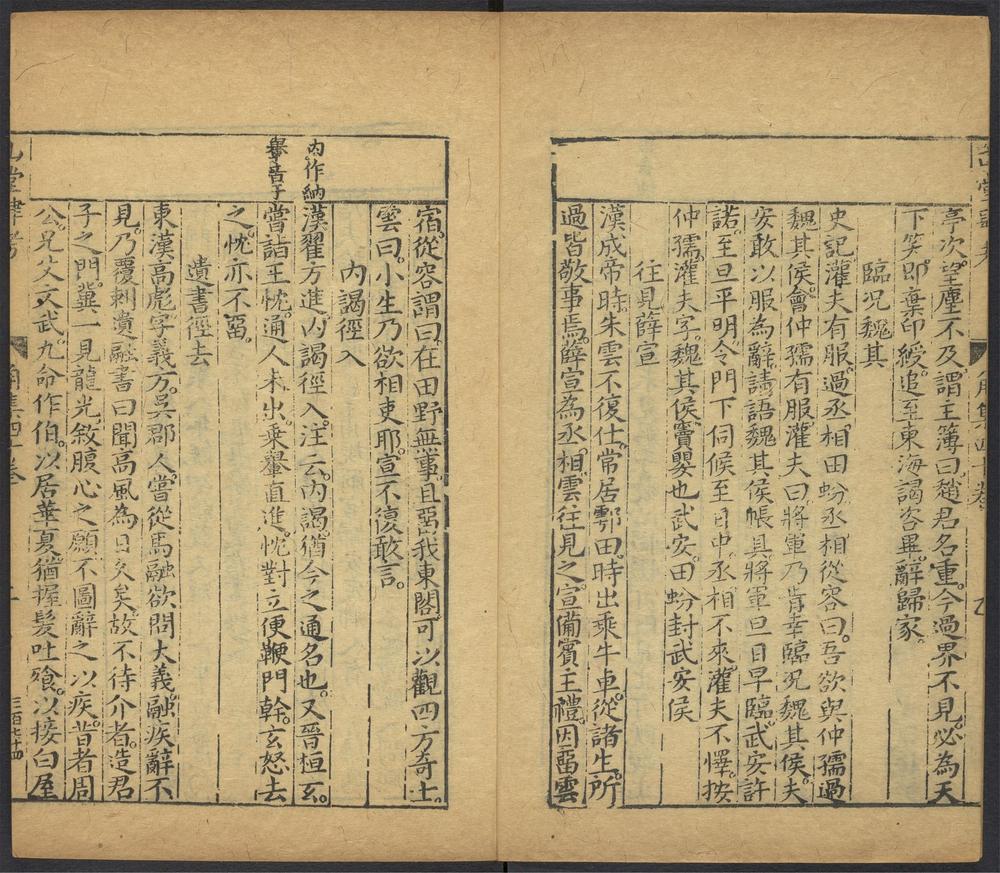 亭次望塵不及謂主簿曰趙君名重今過界不見必為天
下笑即棄印綬追至東海謁咨畢辭歸家
臨况魏其
史記灌夫有服過丞相田蚡丞相從容曰吾欲與仲孺過
魏其侯會仲孺有服灌夫曰將軍乃肯幸臨况魏其侯夫
安敢以服為辭請語魏其侯帳具將軍旦日早臨武安許
諾至旦平明令門下伺候至日中丞相不來灌夫不懌按
仲孺灌夫字魏其侯竇嬰也武安田蚡封武安侯
往見薛宣
漢成帝時朱雲不復仕常居鄠田時出乘牛車從諸生所
過皆敬事焉薛宣為丞相雲往見之宣備賓主禮因留雲
宿從容謂曰在田野無事且留我東閣可以觀四方奇士
雲曰小生乃欲相吏耶宣不復敢言
內謁徑入
內作納
漢翟方進內謁徑入注云內謁猶今之通名也又晉桓玄
轝音于
嘗詣王忱通人未出乘轝直進忱對立便鞭門幹玄怒去
之忱亦不留
遺書徑去
東漢高彪字義方吳郡人嘗從馬融欲問大義融疾辭不
見乃覆刺遺融書曰聞高風為日久矣故不待介者造君
子之門冀一見龍光敘腹心之願不圖辭之以疾昔者周
公兄父文武九命作伯以居華夏猶握髮吐飧以接白屋
三百七十四